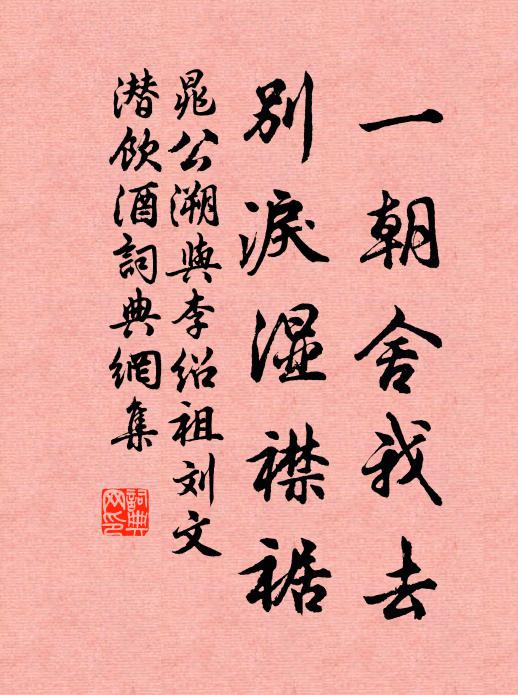 一朝舍我去
别淚湿襟裾
晁公溯與李绍祖刘文
潜飲酒詞典網集
詞典网印